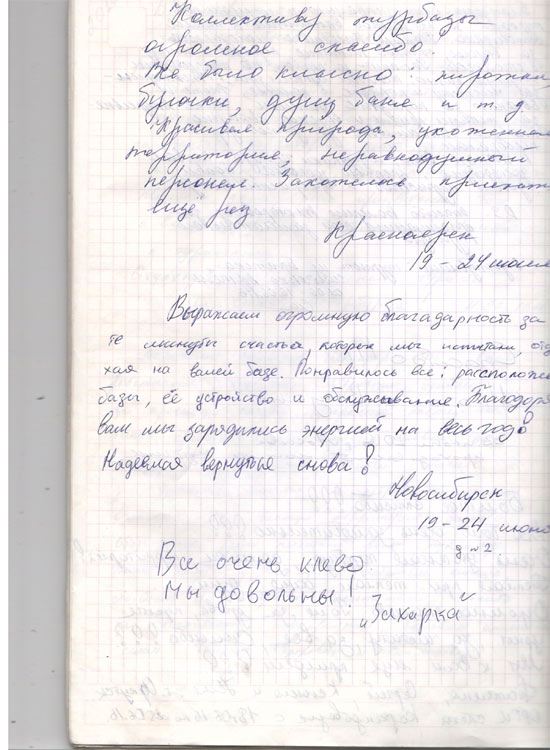 Коллективу турбазы
огромное спасибо.
Все было классно: пирожки,
булочки, душ, баня и т.д.
Красивая природа, ухоженная
территория, неравнодушный
персонал. Захотелось приехать
ещё раз
Красноярск
19 - 24 июня
Выражаем огромную благодарность за
те минуты счастья, которые мы испытали, отды
хая на вашей базе. Понравилось все: расположе
базы, её устройство и обслуживание. Благодаря
вам мы зарядились энергией на весь год!
Надеемся вернуться снова!
Новосибирск
19 - 24 июня
д №2.
Все очень клево.
Мы довольны!
„Захарка“